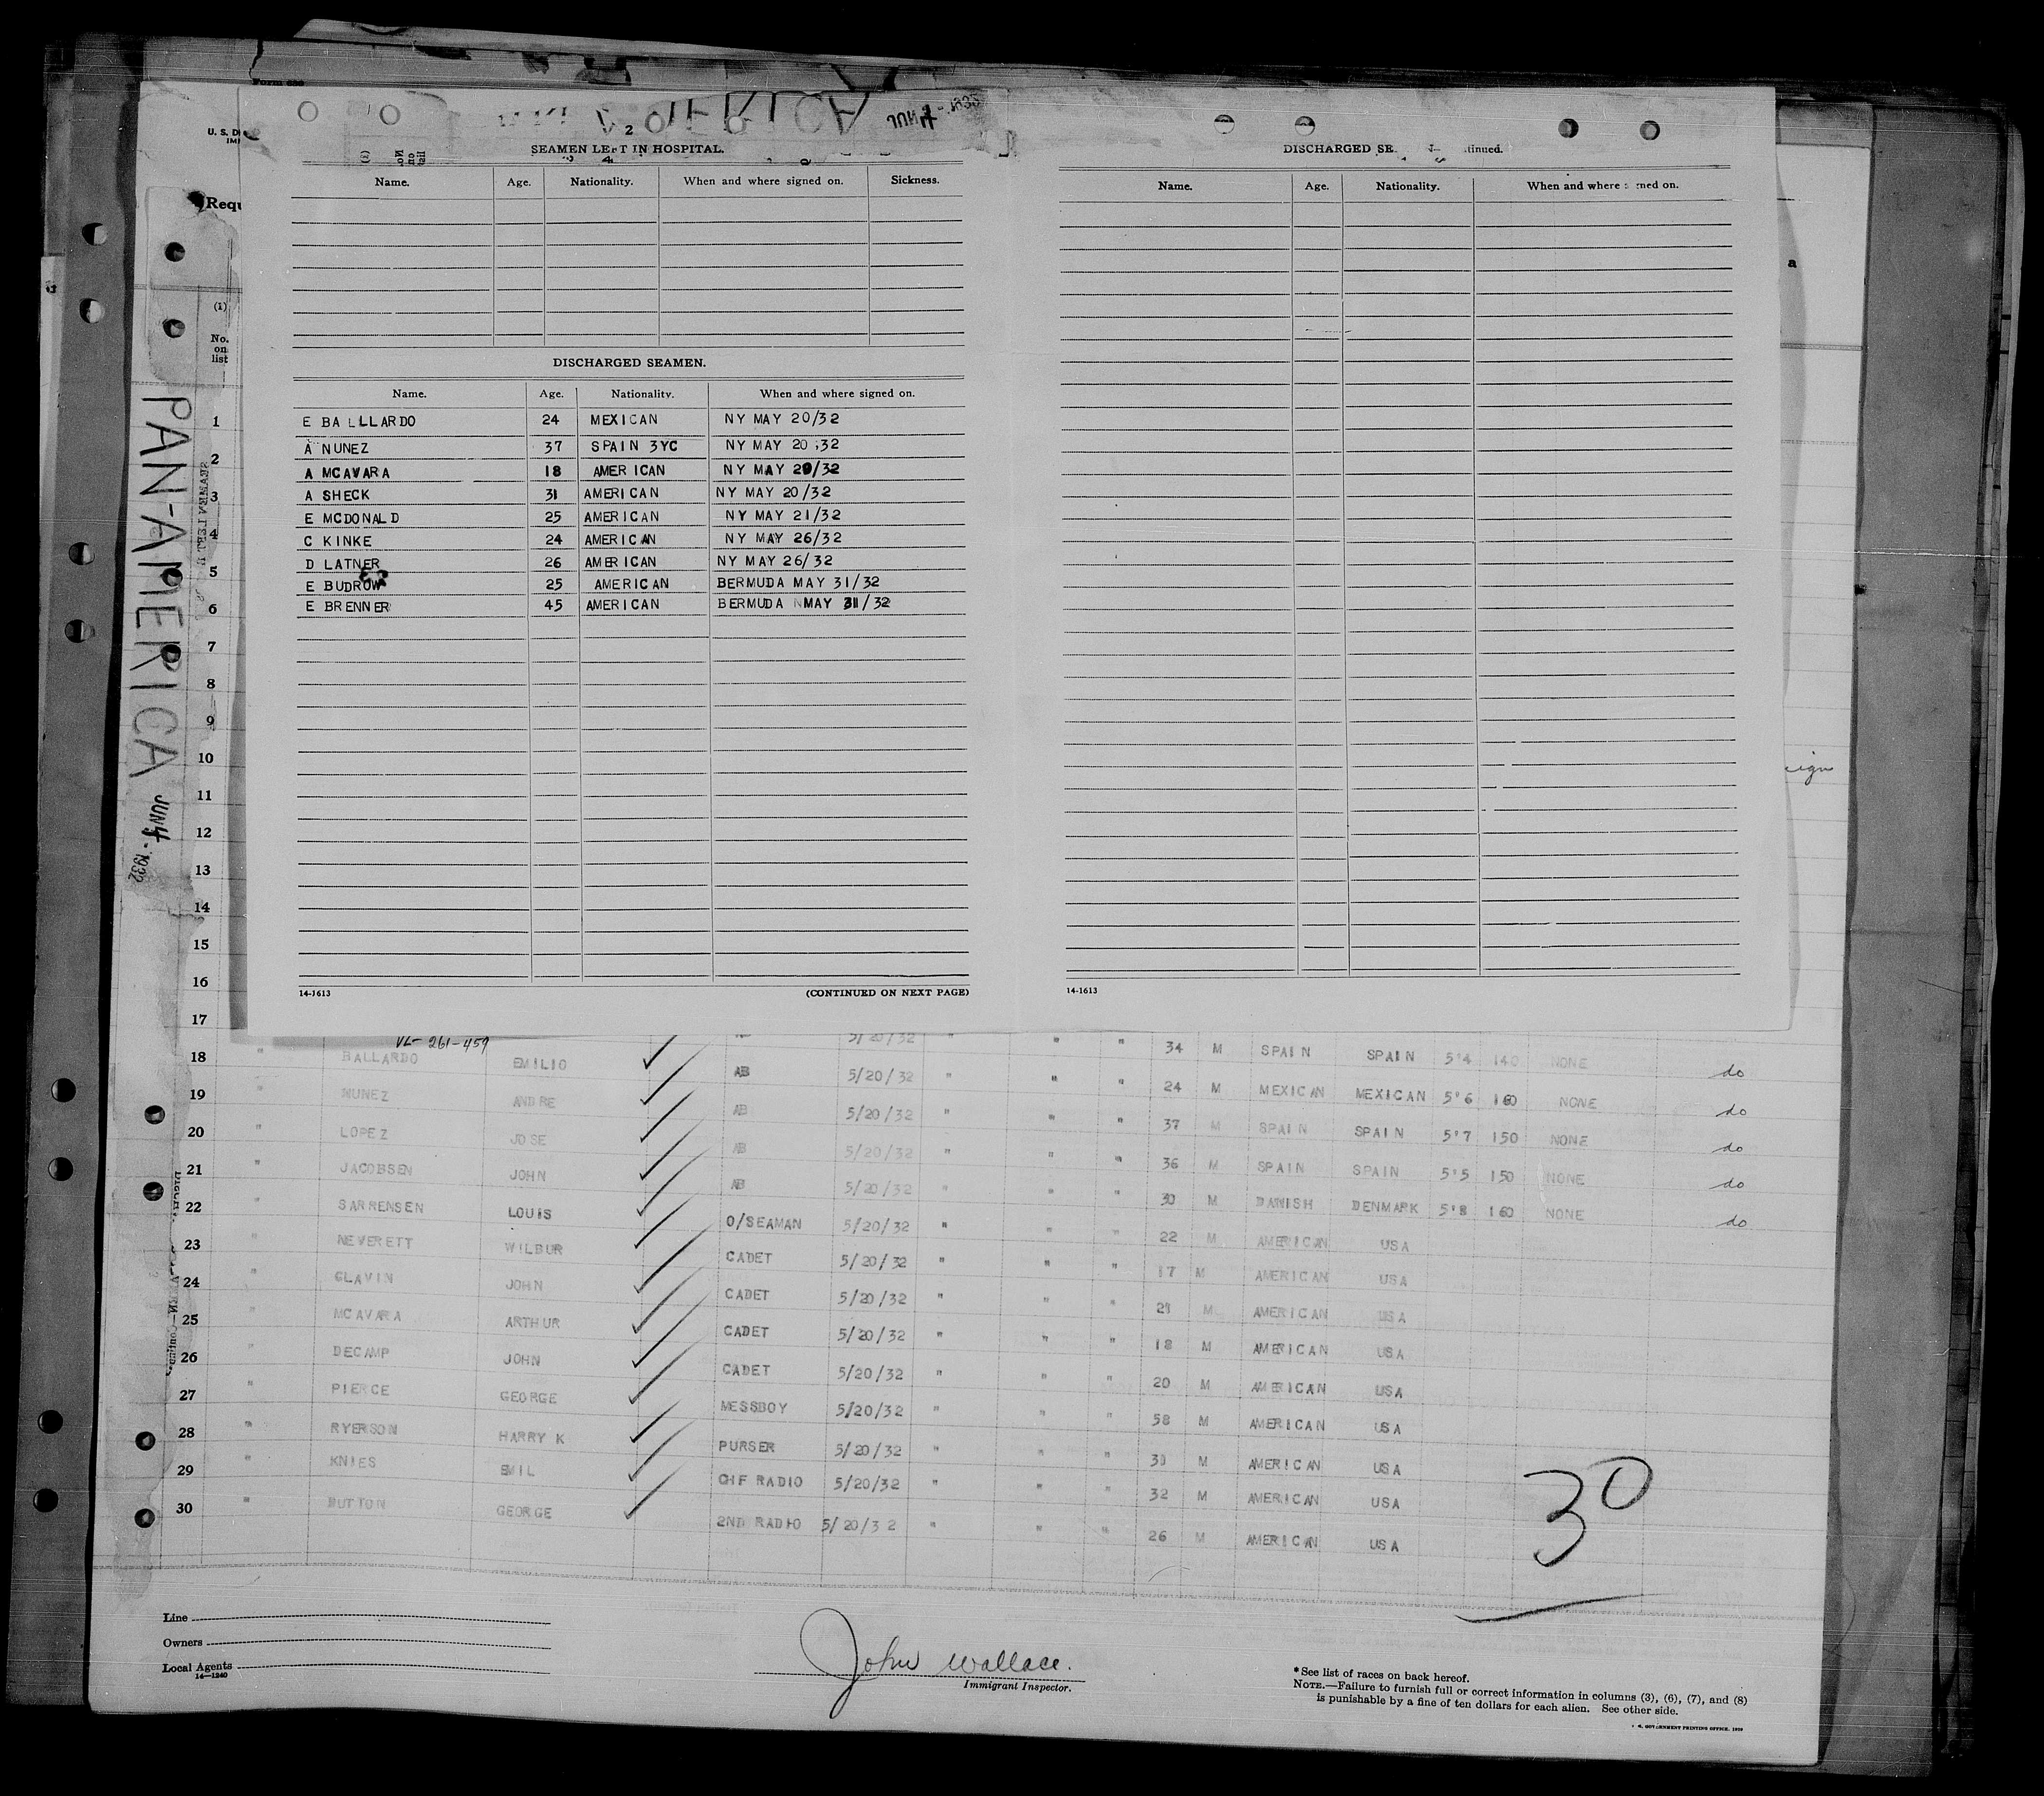 Form 680
U. S. D
IMM
Requ
PAN-AMERICA JUN 4 - 1932
(1)
No. on list
2
SEAMEN LEFT IN HOSPITAL.
Name. Age. Nationality. When and where signed on. Sickness.
DISCHARGED SEAMEN.
Name. Age. Nationality. When and where signed on.
E BALLLARDO 24 MEXICAN NY MAY 20/32
A NUNEZ 37 SPAIN 3YC NY MAY 20/32
A MCAVARA 18 AMERICAN NY MAY 20/32
A SHECK 31 AMERICAN NY MAY 20/32
E MCDONALD 25 AMERICAN NY MAY 21/32
C KINKE 24 AMERICAN NY MAY 26/32
D LATNER 26 AMERICAN NY MAY 26/32
E BUDROW 25 AMERICAN BERMUDA MAY 31/32
E BRENNER 45 AMERICAN BERMUDA MAY 31/32
14-1613 (CONTINUED ON NEXT PAGE)
DISCHARGED SE tinued.
Name. Age. Nationality. When and where s ned on.
14-1613
a
eign
1
2
3
4
5
6
7
8
9
10
11
12
13
14
15
16
17
VL-261-459
5/20/32 " " " 34 M SPAIN SPAIN 5'4 140 NONE do
18 " BALLARDO EMILIO AB 5/20/32 " " " 24 M MEXICAN MEXICAN 5'6 160 NONE do
19 " NUNEZ ANDRE AB 5/20/32 " " " 37 M SPAIN SPAIN 5'7 150 NONE do
20 " LOPEZ JOSE AB 5/20/32 " " " 36 M SPAIN SPAIN 5'5 150 NONE do
21 " JACOBSEN JOHN AB 5/20/32 " " " 30 M DANISH DENMARK 5'8 160 NONE do
22 " SARRENSEN LOUIS O/SEAMAN 5/20/32 " " " 22 M AMERICAN USA
23 " NEVERETT WILBUR CADET 5/20/32 " " " 17 M AMERICAN USA
24 " GLAVIN JOHN CADET 5/20/32 " " " 21 M AMERICAN USA
25 " MCAVARA ARTHUR CADET 5/20/32 " " " 18 M AMERICAN USA
26 " DECAMP JOHN CADET 5/20/32 " " " 20 M AMERICAN USA
27 " PIERCE GEORGE MESSBOY 5/20/32 " " " 58 M AMERICAN USA
28 " RYERSON HARRY K PURSER 5/20/32 " " " 30 M AMERICAN USA
29 " KNIES EMIL CHF RADIO 5/20/32 " " " 32 M AMERICAN USA
30 " DUTTON GEORGE 2ND RADIO 5/20/32 " " " 26 M AMERICAN USA
30
Line
Owners
Local Agents
14-1240
John Wallace.
Immigrant Inspector.
*See list of races on back hereof.
NOTE.—Failure to furnish full or correct information in columns (3), (6), (7), and (8)
is punishable by a fine of ten dollars for each alien. See other side.
GOVERNMENT PRINTING OFFICE.